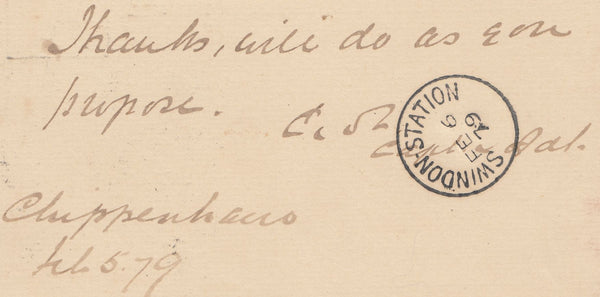 Thanks, will do as you
propose.
SWINDON-STATION
FE 6
79
Chippenham
Feb. 5. 79